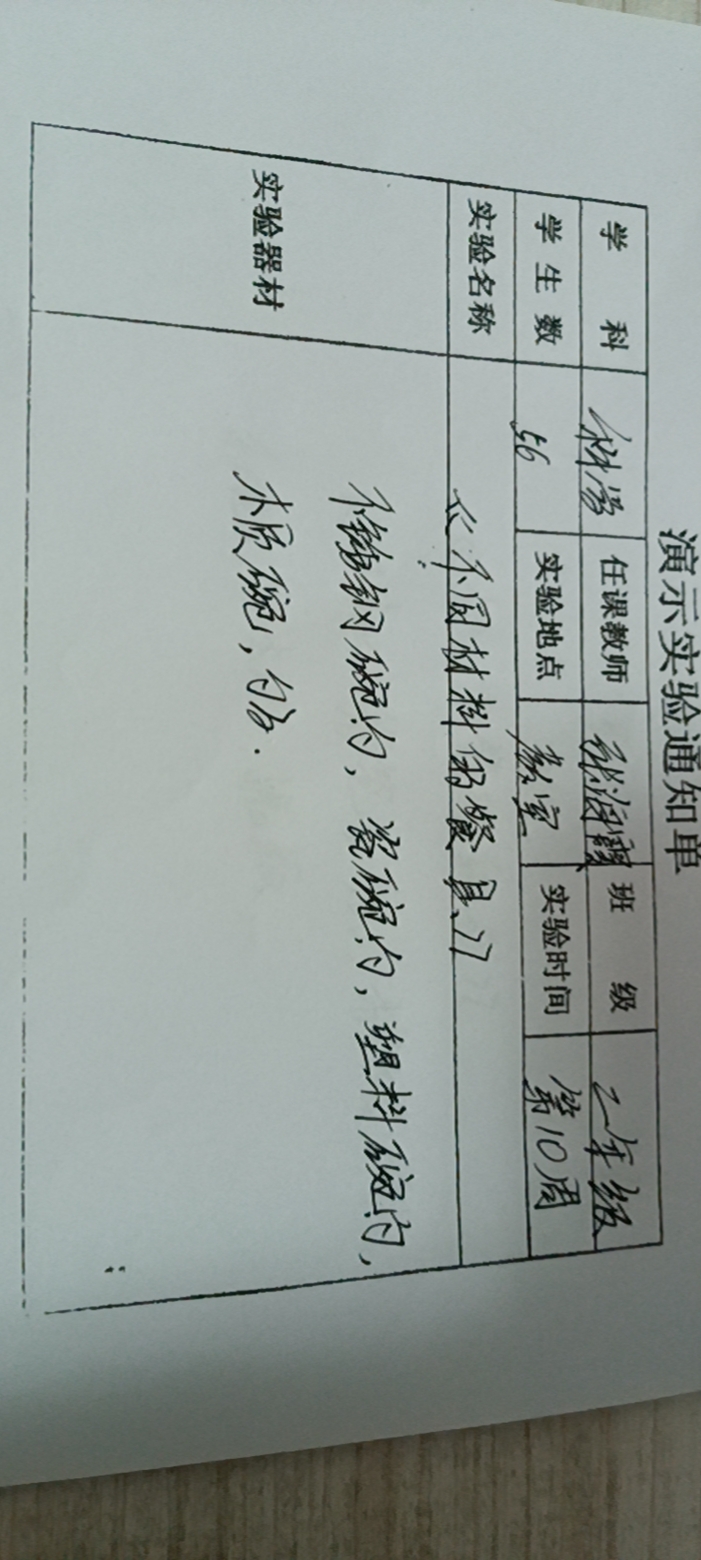 演示实验通知单
学 科 科学 任课教师 张海霞 班 级 二年级
学 生 数 56 实验地点 教室 实验时间 第10周
实验名称 《不同材料的餐具》
实验器材 不锈钢碗勺，瓷碗勺，塑料碗勺，
木质碗，勺等.